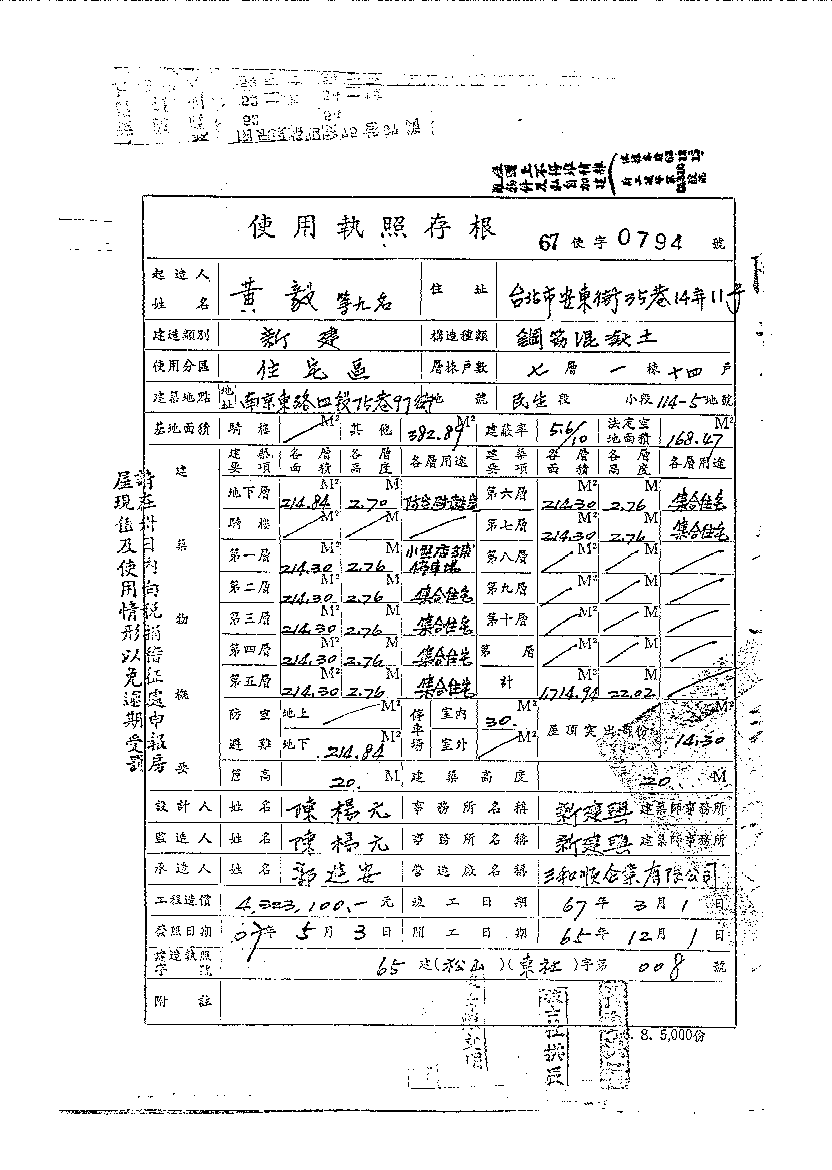 使用執照存根
67 使字 0794 號
起造人姓名 黃毅等九名 住址 台北市安東街35巷14弄11号
建造類別 新建 構造種類 鋼筋混凝土
使用分區 住宅區 層棟戶數 七層 一棟 十四戶
建築地點 地址 南京東路四段75巷97 地號 民生段 小段 114-5 地號
基地面積 騎樓 / M² 其他 382.89 M² 建蔽率 5.6/10 法定空地面積 168.47 M²
建築物概要
建築要項 各層面積 各層高度 各層用途 建築要項 各層面積 各層高度 各層用途
地下層 214.84 M² 2.70 M 防空避難室 第六層 214.30 M² 2.76 M 集合住宅
騎樓 / M² / M / 第七層 214.30 M² 2.76 M 集合住宅
第一層 214.30 M² 2.76 M 小型店鋪 停車場 第八層 / M² / M /
第二層 214.30 M² 2.76 M 集合住宅 第九層 / M² / M /
第三層 214.30 M² 2.76 M 集合住宅 第十層 / M² / M /
第四層 214.30 M² 2.76 M 集合住宅 第 層 / M² / M /
第五層 214.30 M² 2.76 M 集合住宅 計 1,714.94 M² 22.02 M /
防空避難 地上 / M² 停車場 室內 30. M² 屋頂突出部份 14.30 M²
地下 214.84 M² 室外 / M²
簷高 20. M 建築高度 20. M
設計人 姓名 陳楊元 事務所名稱 新建興 建築師事務所
監造人 姓名 陳楊元 事務所名稱 新建興 建築師事務所
承造人 姓名 郭進安 營造廠名稱 三和順企業有限公司
工程造價 4,323,100.- 元 竣工日期 67年 3月 1日
發照日期 67年 5月 3日 開工日期 65年 12月 1日
建造執照字號 65 建(松山)(東社)字第 008 號
附註
8. 5,000份
請在 日內向稅捐稽征處申報房
屋現值及使用情形以免逾期受罰